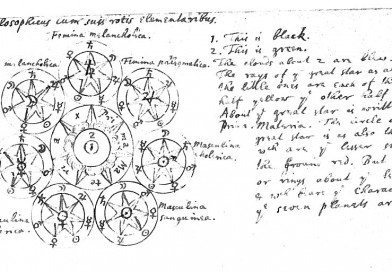 losophicus cum suis rotis elementaribus.
Femina melancholica.
melancholica.
Femina phlegmatica.
Masculina
cholerica.
Masculina
sanguinea.
1. This is black.
2. This is green.
The clouds about 2 are blue.
The rays of ye great star as al
the little ones are each of th
half yellow ye other half
About ye great star is writt
Prim. Materia. The circle a
great star is as also th
wch are ye lesser
the ground red. But
or rings about ye le
wch have ye charac
ye seven planets ar